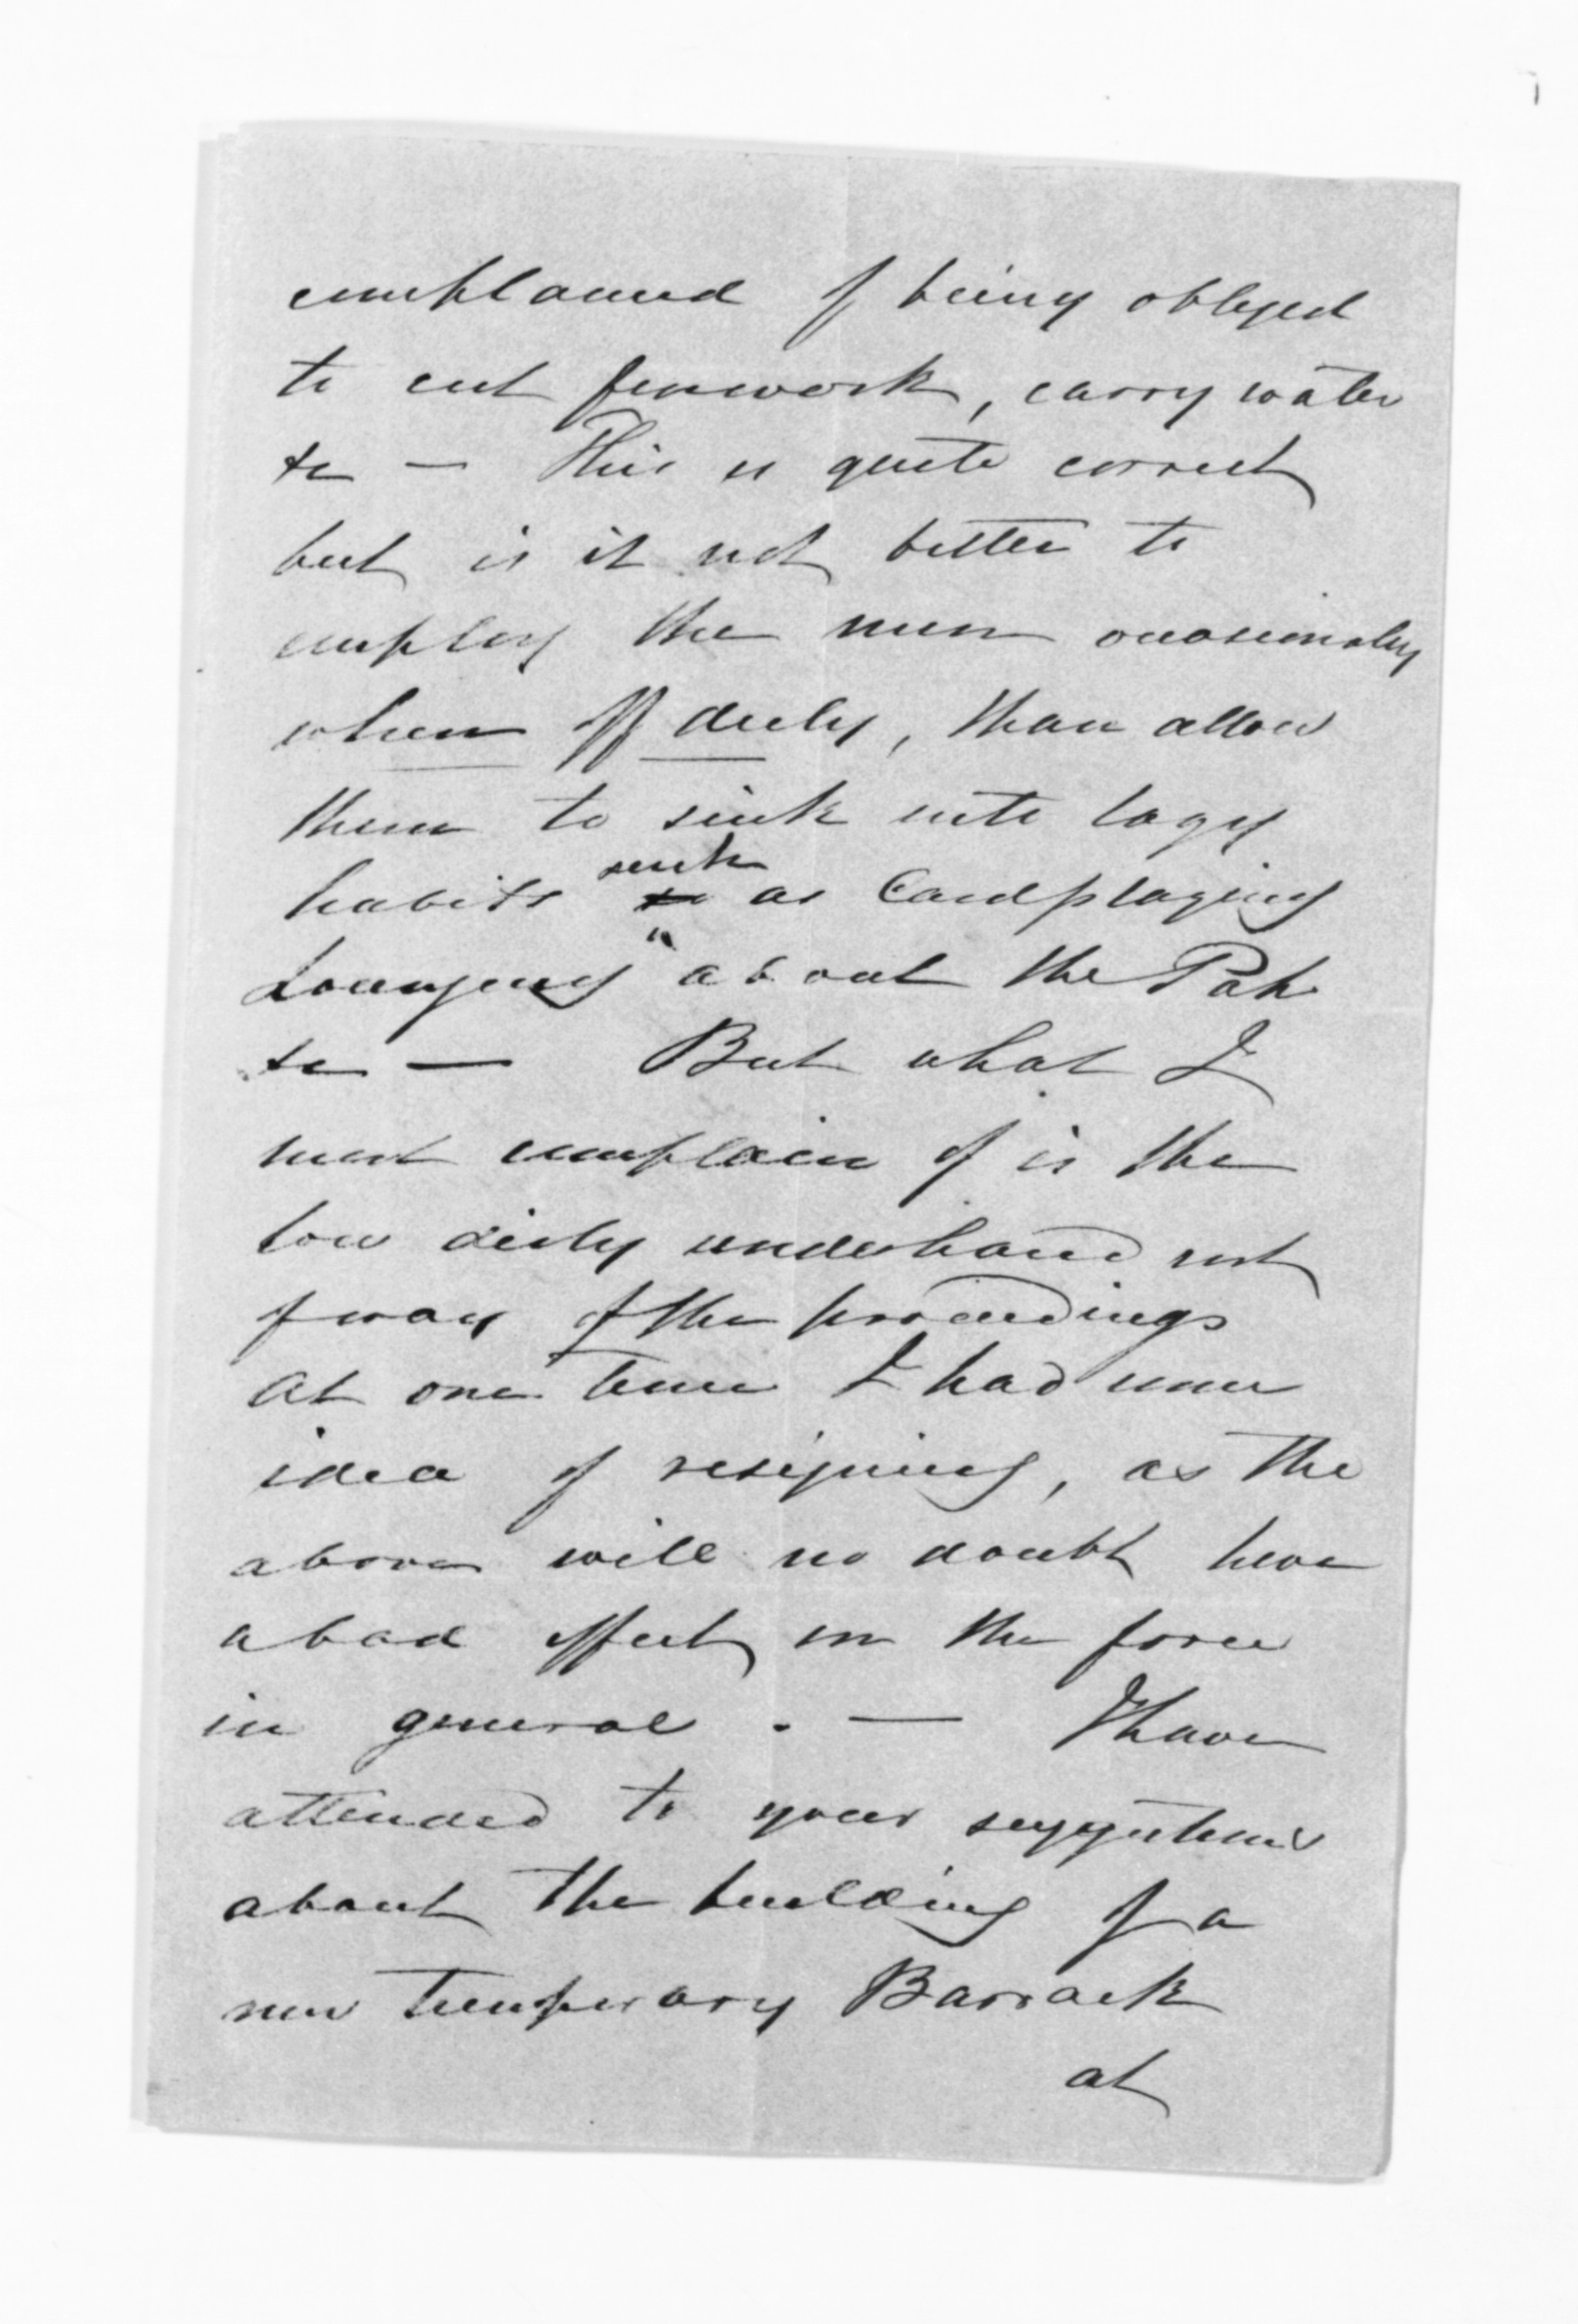 complained of being obliged
to cut firewood, carry water
&c — This is quite correct
but is it not better to
employ the men occasionaly
when off duty, than allow
them to sink into lazy
habits such as Cardplaying
Lounging about the Pah
&c — But what I
most complain of is the
low dirty underhand sort
of way of the proceedings
At one time I had some
idea of resigning, as the
above will no doubt have
a bad effect on the force
in general . — I have
attended to your suggestions
about the building of a
new temporary Barrack
at